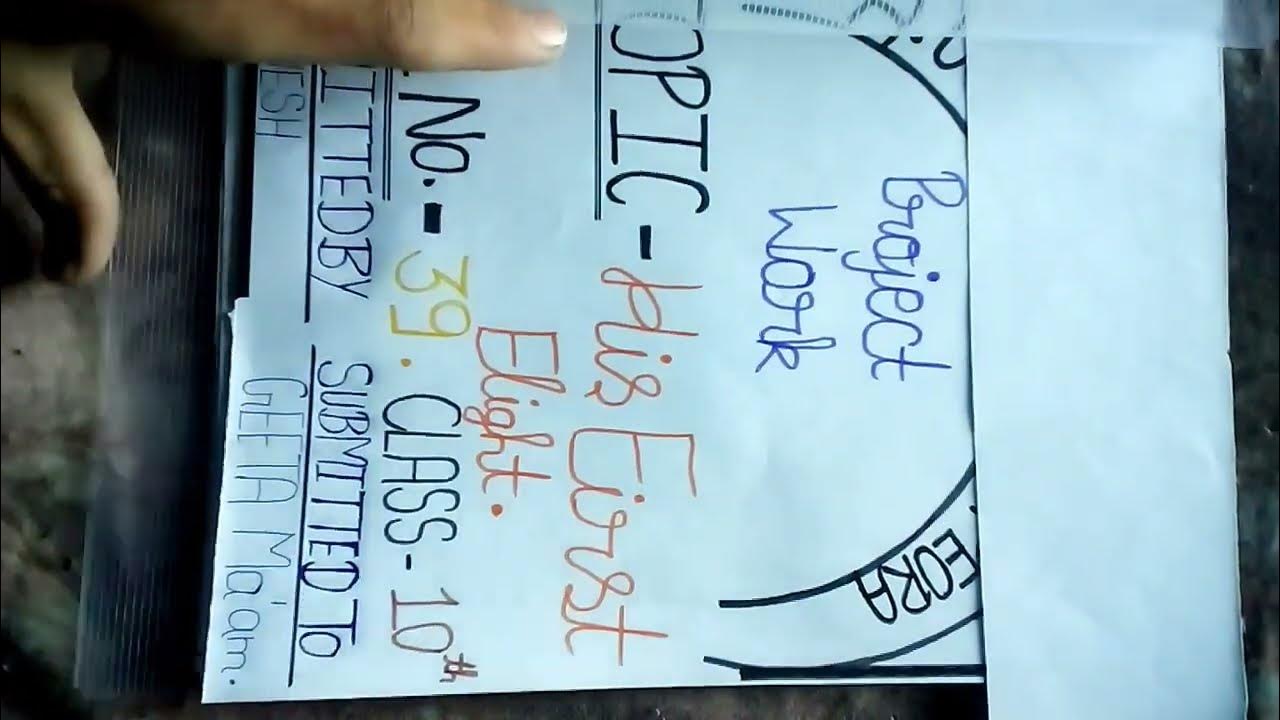 EORA
Project
Work
OPIC - His First
Flight.
. No. - 39 . CLASS - 10th
ITTED BY SUBMITTED TO
ESH GEETA Ma'am.